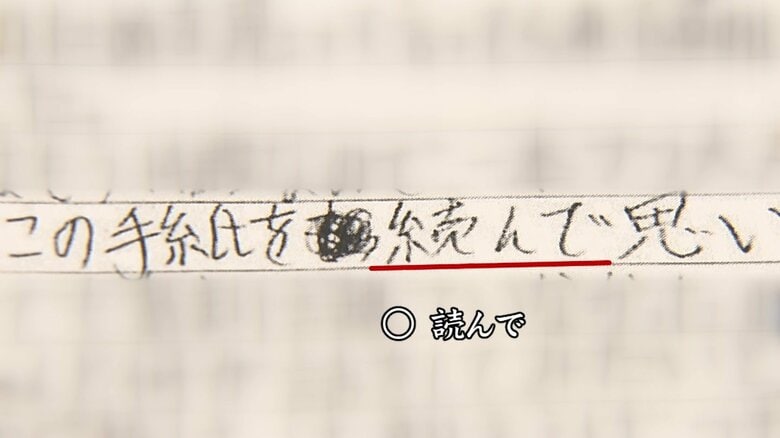 この手紙を続んで思い
◎ 読んで